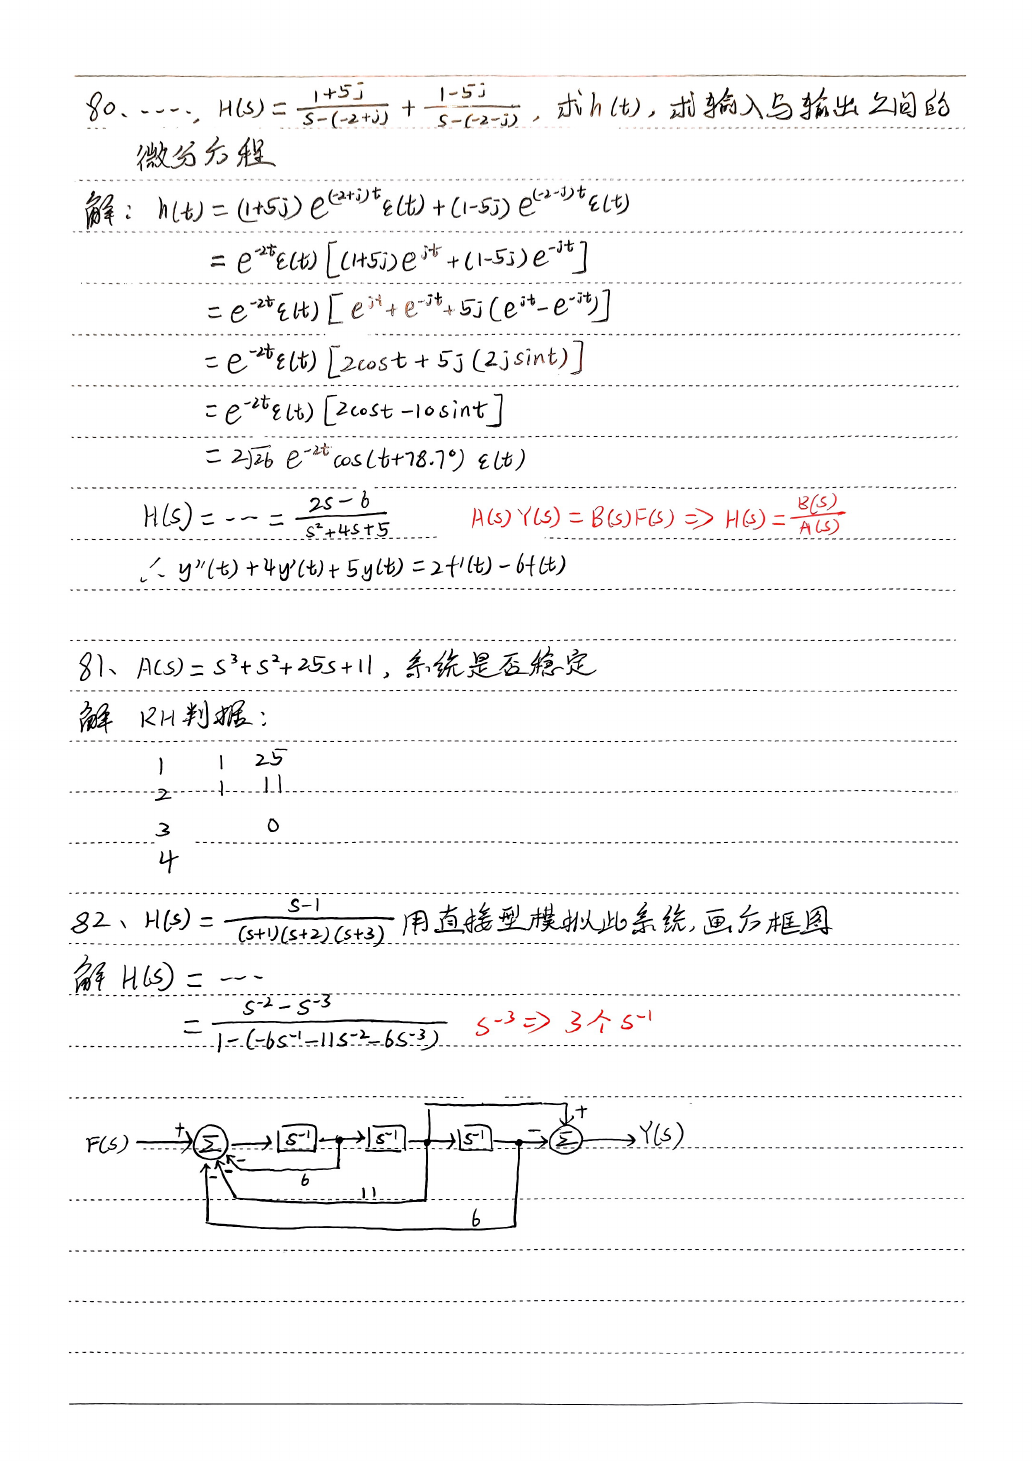 80、……, H(s) = \frac{1+5j}{s-(-2+j)} + \frac{1-5j}{s-(-2-j)}, 求h(t), 求输入与输出之间的
微分方程
解: h(t) = (1+5j) e^{(-2+j)t} ε(t) + (1-5j) e^{(-2-j)t} ε(t)
= e^{-2t} ε(t) [(1+5j) e^{jt} + (1-5j) e^{-jt}]
= e^{-2t} ε(t) [e^{jt} + e^{-jt} + 5j (e^{jt} - e^{-jt})]
= e^{-2t} ε(t) [2cost + 5j (2jsint)]
= e^{-2t} ε(t) [2cost - 10sint]
= 2√26 e^{-2t} cos(t+78.7°) ε(t)
H(s) = …… = \frac{2s-6}{s²+4s+5} A(s)Y(s) = B(s)F(s) => H(s) = \frac{B(s)}{A(s)}
∴ y''(t) + 4y'(t) + 5y(t) = 2f'(t) - 6f(t)
81、A(s) = s³+s²+25s+11, 系统是否稳定
解 RH判据:
1 1 25
2 1 11
3 0
4
82、H(s) = \frac{s-1}{(s+1)(s+2)(s+3)} 用直接型模拟此系统, 画方框图
解 H(s) = ……
= \frac{s^{-2} - s^{-3}}{1-(-6s^{-1}-11s^{-2}-6s^{-3})} s^{-3} => 3个s^{-1}
+
F(s) + Σ s^{-1} s^{-1} s^{-1} - Σ Y(s)
- - -
6
11
6